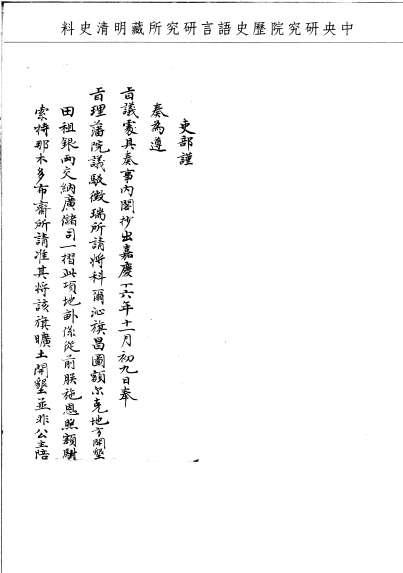 中央研究院歷史語言研究所藏明清史料
吏部謹
奏為遵
旨議處具奏事內閣抄出嘉慶十六年十一月初九日奉
旨理藩院議駁徵瑞所請將科爾沁旗昌圖額尔克地方開墾
田租銀兩交納廣儲司一摺此項地畝係從前朕施恩照額駙
索特那木多布齋所請准其將該旗曠土開墾並非公主陪